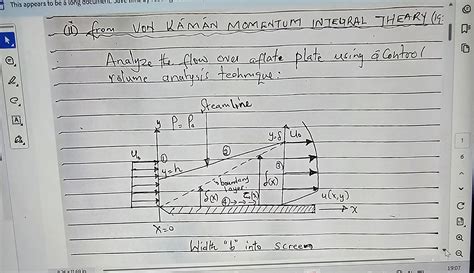 This appears to be a long document. Save time by
(ii) from VON KÁMÁN MOMENTUM INTEGRAL THEARY
Analyze the flow over a flate plate using a Control
volume analysis technique:
Streamline
y P = P₀ y=δ U₀
U₀ ① ② ③
y=h
boundary layer
δ(x) δ(x)
④ u(x,y)
x
X=0
Width "b" into screen
19:07